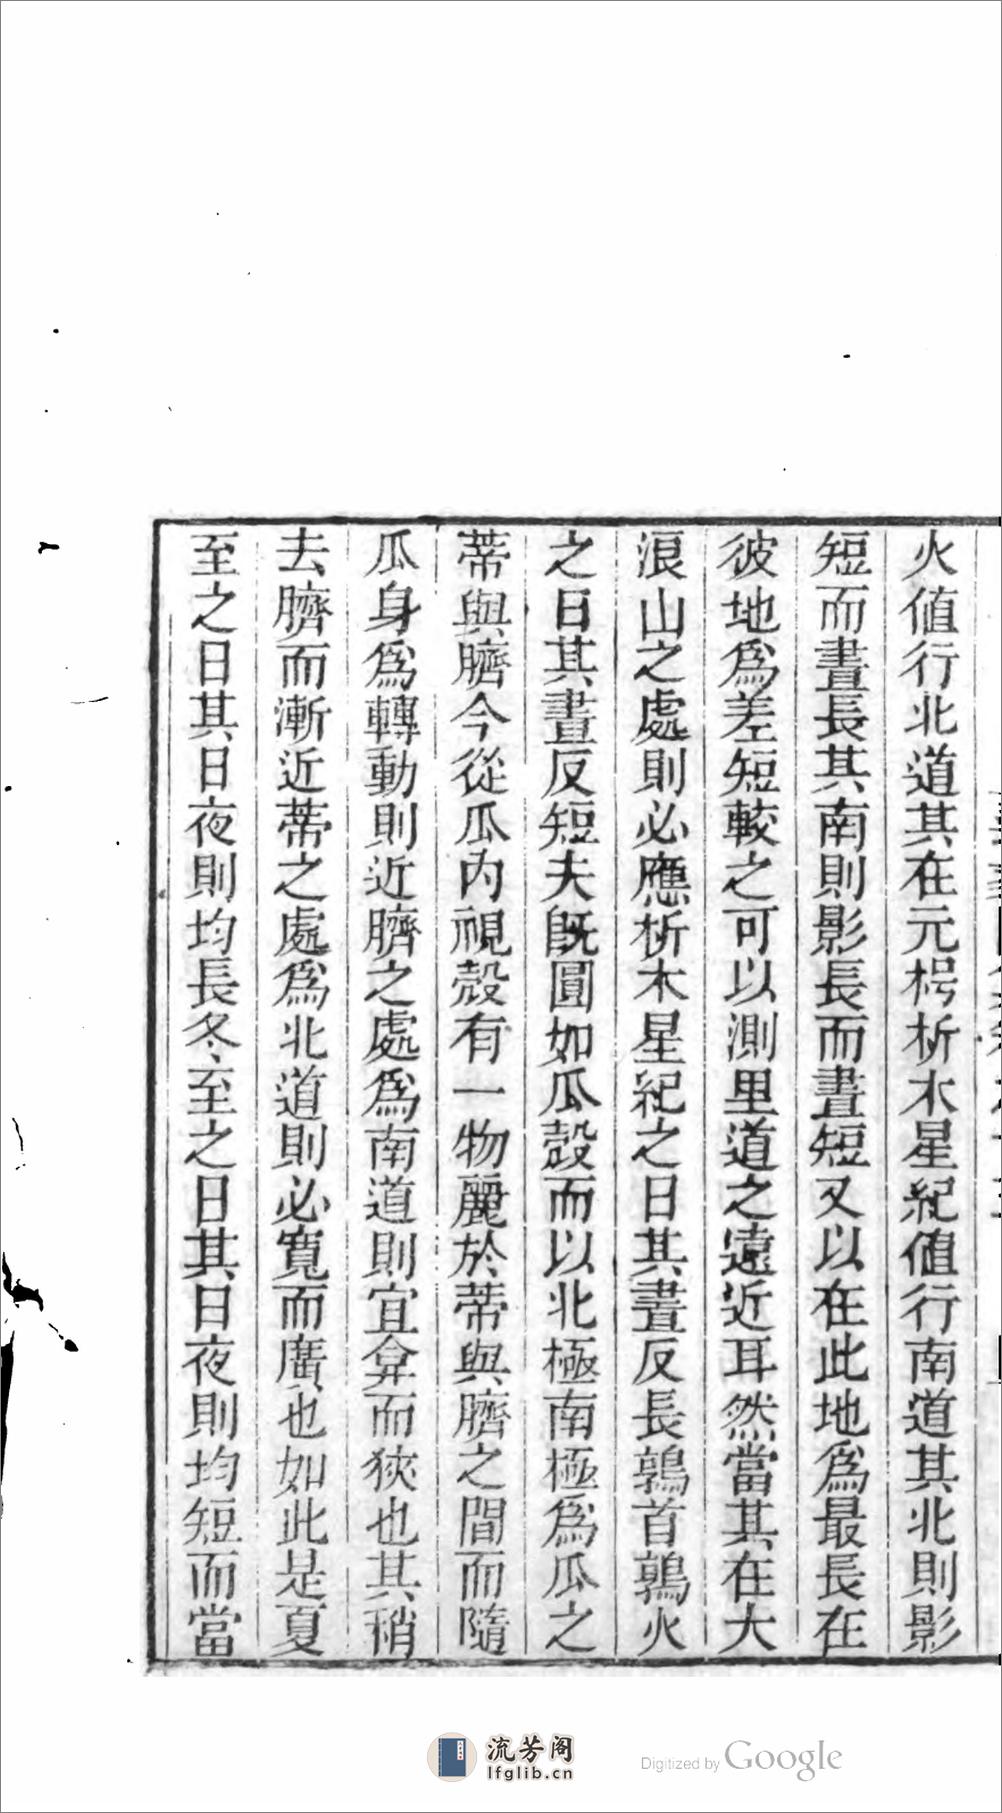 火値行北道其在元枵析木星紀値行南道其北則影
短而晝長其南則影長而晝短又以在此地爲最長在
彼地爲差短較之可以測里道之遠近耳然當其在大
浪山之處則必應析木星紀之日其晝反長鶉首鶉火
之日其晝反短夫旣圓如瓜殼而以北極南極爲瓜之
蒂與臍今從瓜内視殼有一物麗於蒂與臍之間而隨
瓜身爲轉動則近臍之處爲南道則宜弇而狹也其稍
去臍而漸近蒂之處爲北道則必寬而廣也如此是夏
至之日其日夜則均長冬至之日其日夜則均短而當
流芳阁
lfglib.cn
Digitized by Google